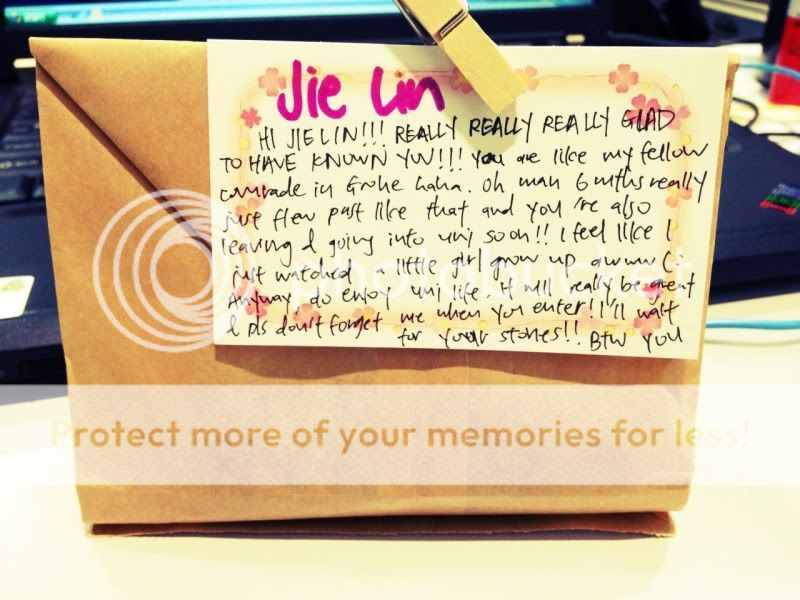 Jie Lin
HI JIELIN!!! REALLY REALLY REALLY GLAD
TO HAVE KNOWN YOU!!! You are like my fellow
comrade in haha. Oh man 6 mths really
just flew past like that and you're also
leaving & going into uni soon!! I feel like I
just watched a little girl grow up awww (:
Anyway, do enjoy uni life. It will really be great
& pls don't forget me when you enter! I'll wait
for your stories!! Btw you
photobucket
Protect more of your memories for less!